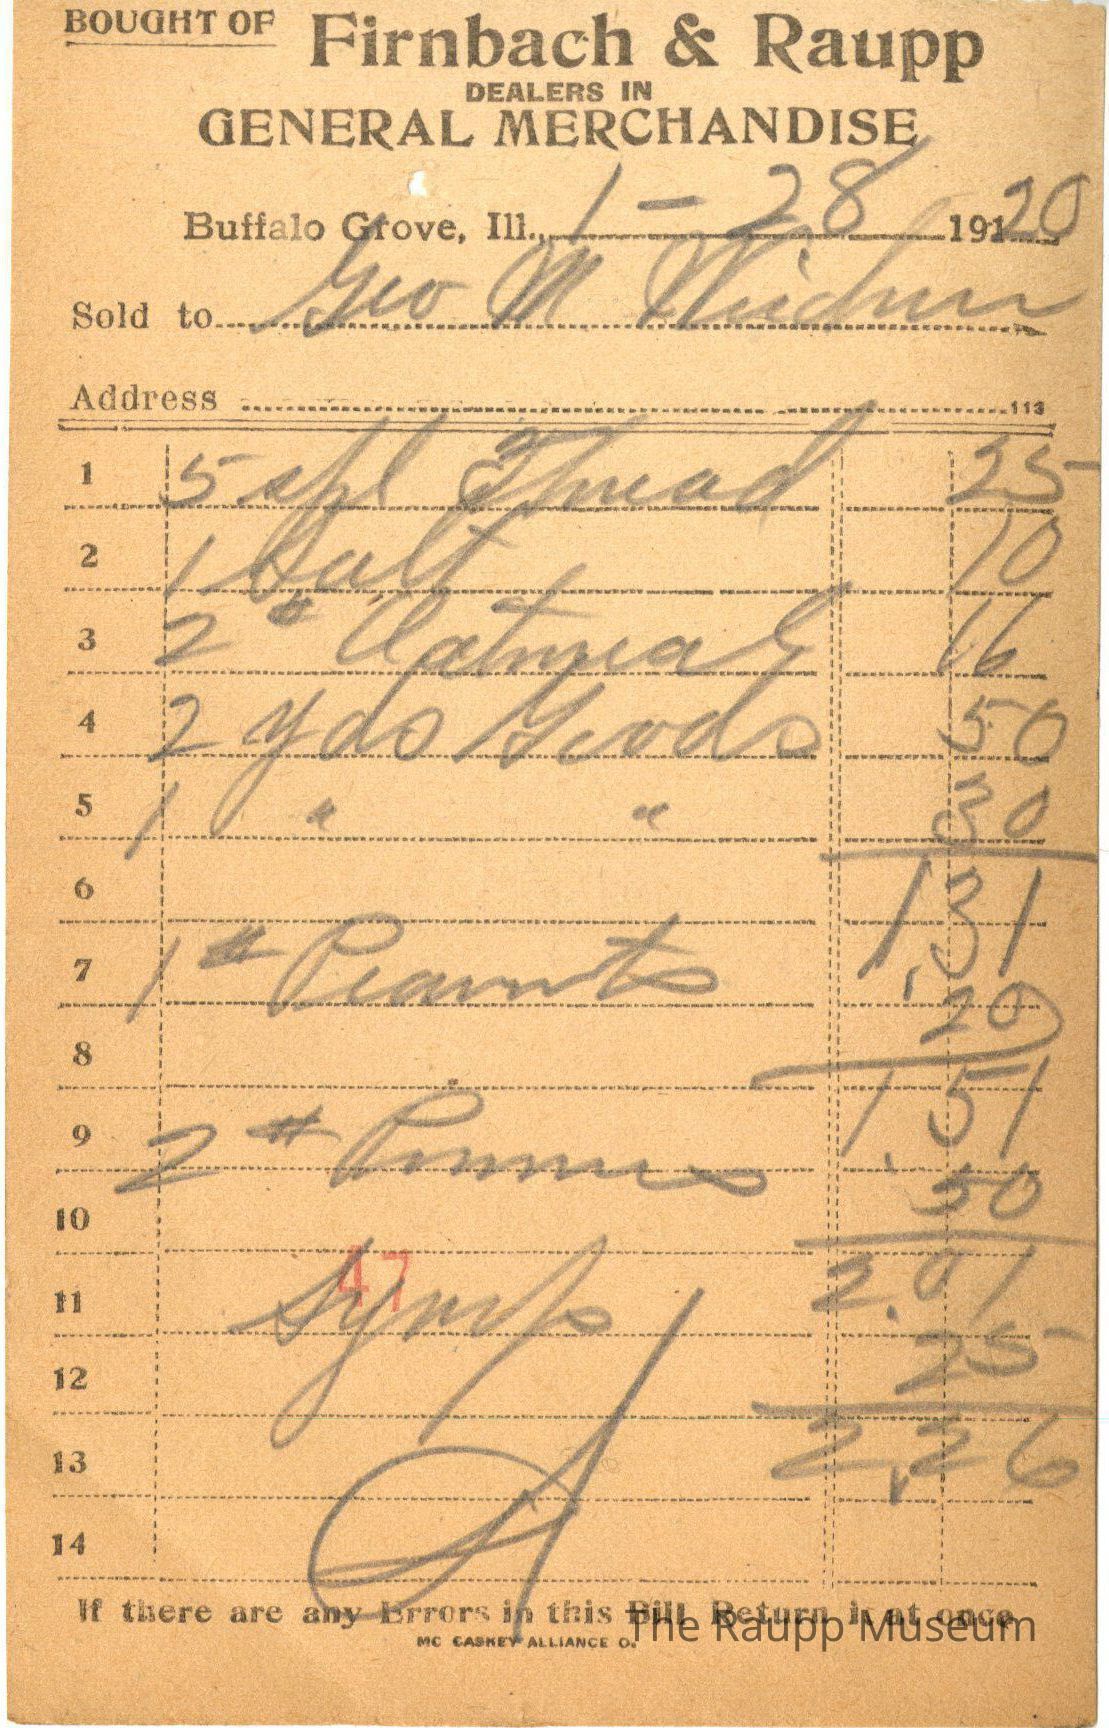 BOUGHT OF Firnbach & Raupp
DEALERS IN
GENERAL MERCHANDISE
Buffalo Grove, Ill., 1 - 28 191 20
Sold to Geo M Weidner
Address 113
1 5 spl Thread 25
2 1 Salt 10
3 2 # Oatmeal 16
4 2 yds Goods 50
5 1 " " 30
6 1,31
7 1 # Peanuts
20
8 1 51
9 2 # Prunes
10 50
47
11 Syrup 2.01
12 25
13 2,26
14
If there are any Errors in this Bill Return it at once
MC CASKEY ALLIANCE O.
The Raupp Museum